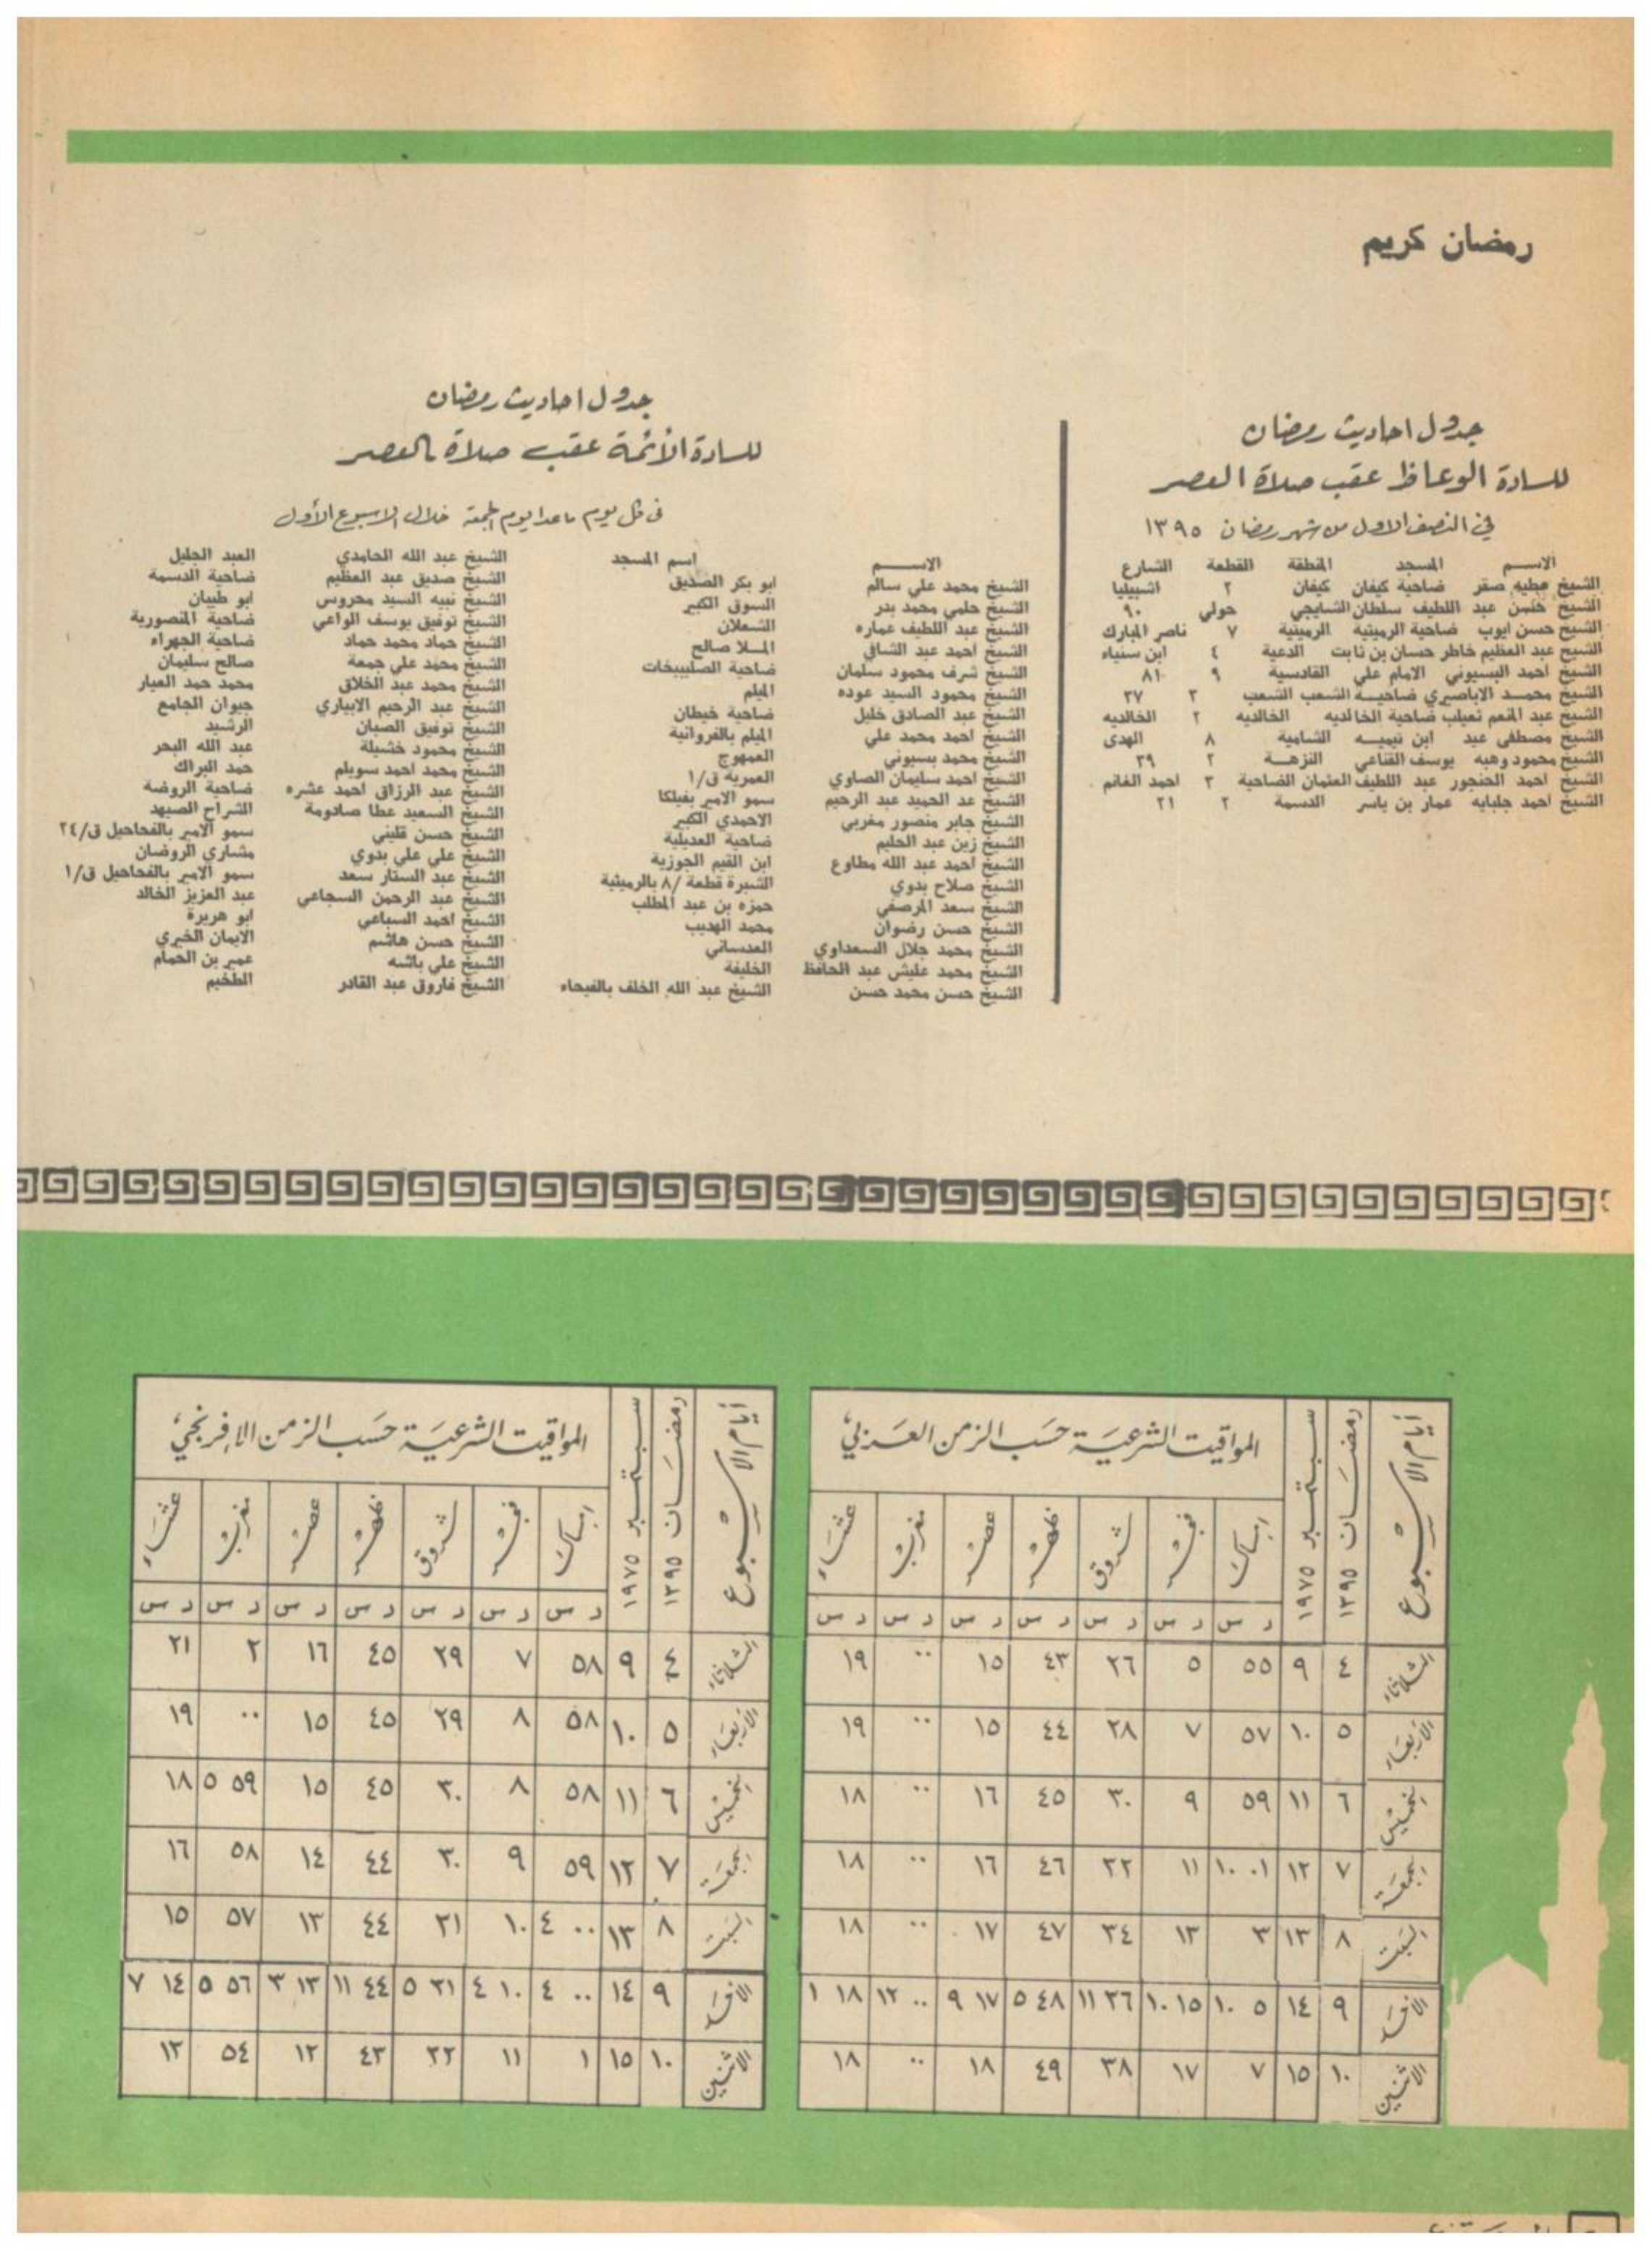 رمضان كريم
جدول احاديث رمضان
للسادة الوعاظ عقب صلاة العصر
في النصف الاول من شهر رمضان ١٣٩٥
الاســم المسجد المنطقة القطعة الشارع
الشيخ عطيه صقر ضاحية كيفان كيفان ٢ اشبيليا
الشيخ حسن عبد اللطيف سلطان الشايجي حولي ٩٠
الشيخ حسن ايوب ضاحية الرميثية الرميثية ٧ ناصر المبارك
الشيخ عبد العظيم خاطر حسان بن ثابت الدعية ٤ ابن سنياء
الشيخ احمد البسيوني الامام علي القادسية ٩ ٨١
الشيخ محمــد الاباصيري ضاحيــة الشعب الشعب ٢ ٢٧
الشيخ عبد المنعم تعيلب ضاحية الخالديه الخالديه ٢ الخالديه
الشيخ مصطفى عيد ابن تيميــه الشامية ٨ الهدى
الشيخ محمود وهبه يوسف القناعي النزهــة ٢ ٣٩
الشيخ احمد الحنجور عبد اللطيف العثمان الضاحية ٣ احمد الغانم
الشيخ احمد جلبايه عمار بن ياسر الدسمة ٢ ٢١
جدول احاديث رمضان
للسادة الأئمة عقب صلاة العصر
في كل يوم ماعدا يوم الجمعة خلال الاسبوع الأول
الاســـم اسم المسجد
الشيخ محمد علي سالم ابو بكر الصديق
الشيخ حلمي محمد بدر السوق الكبير
الشيخ عبد اللطيف عماره الشعلان
الشيخ احمد عبد الشافي المــلا صالح
الشيخ شرف محمود سلمان ضاحية الصليبيخات
الشيخ محمود السيد عوده الميلم
الشيخ عبد الصادق خليل ضاحية خيطان
الشيخ احمد محمد علي الميلم بالفروانية
الشيخ محمد بسيوني العمهوج
الشيخ احمد سليمان الصاوي العمرية ق/١
الشيخ عد الحميد عبد الرحيم سمو الامير بفيلكا
الشيخ جابر منصور مغربي الاحمدي الكبير
الشيخ زين عبد الحليم ضاحية العديلية
الشيخ احمد عبد الله مطاوع ابن القيم الجوزية
الشيخ صلاح بدوي الشبرة قطعة /٨ بالرميثية
الشيخ سعد المرصفي حمزه بن عبد المطلب
الشيخ حسن رضوان محمد الهديب
الشيخ محمد جلال السعداوي العدساني
الشيخ محمد عليش عبد الحافظ الخليفة
الشيخ حسن محمد حسن الشيخ عبد الله الخلف بالفيحاء
الشيخ عبد الله الحامدي العبد الجليل
الشيخ صديق عبد العظيم ضاحية الدسمة
الشيخ نبيه السيد محروس ابو طيبان
الشيخ توفيق يوسف الواعي ضاحية المنصورية
الشيخ حماد محمد حماد ضاحية الجهراء
الشيخ محمد علي جمعة صالح سليمان
الشيخ محمد عبد الخلاق محمد حمد العيار
الشيخ عبد الرحيم الابياري جيوان الجامع
الشيخ توفيق الصبان الرشيد
الشيخ محمود خشيلة عبد الله البحر
الشيخ محمد احمد سويلم حمد البراك
الشيخ عبد الرزاق احمد عشره ضاحية الروضة
الشيخ السعيد عطا صادومة الشراح الصيهد
الشيخ حسن قليني سمو الامير بالفحاحيل ق/٢٤
الشيخ علي علي بدوي مشاري الروضان
الشيخ عبد الستار سعد سمو الامير بالفحاحيل ق/١
الشيخ عبد الرحمن السجاعي عبد العزيز الخالد
الشيخ احمد السباعي ابو هريرة
الشيخ حسن هاشم الايمان الخيري
الشيخ علي باشه عمير بن الحمام
الشيخ فاروق عبد القادر الطخيم
أيام الاسبوع رمضــان ١٣٩٥ سبتمبر ١٩٧٥ المواقيت الشرعية حسب الزمن العربي
امساك فجر شروق ظهر عصر مغرب عشاء
د س د س د س د س د س د س د س
الثلاثاء ٤ ٩ ٥٥ ٥ ٢٦ ٤٣ ١٥ ٠٠ ١٩
الأربعاء ٥ ١٠ ٥٧ ٧ ٢٨ ٤٤ ١٥ ٠٠ ١٩
الخميس ٦ ١١ ٥٩ ٩ ٣٠ ٤٥ ١٦ ٠٠ ١٨
الجمعة ٧ ١٢ ٠١ ١٠ ١١ ٣٢ ٤٦ ١٦ ٠٠ ١٨
السبت ٨ ١٣ ٣ ١٣ ٣٤ ٤٧ ١٧ ٠٠ ١٨
الأحد ٩ ١٤ ٥ ١٠ ١٥ ١٠ ٣٦ ١١ ٤٨ ٥ ١٧ ٩ ٠٠ ١٢ ١٨ ١
الاثنين ١٠ ١٥ ٧ ١٧ ٣٨ ٤٩ ١٨ ٠٠ ١٨
أيام الاسبوع رمضــان ١٣٩٥ سبتمبر ١٩٧٥ المواقيت الشرعية حسب الزمن الإفرنجي
امساك فجر شروق ظهر عصر مغرب عشاء
د س د س د س د س د س د س د س
الثلاثاء ٤ ٩ ٥٨ ٧ ٢٩ ٤٥ ١٦ ٢ ٢١
الأربعاء ٥ ١٠ ٥٨ ٨ ٢٩ ٤٥ ١٥ ٠٠ ١٩
الخميس ٦ ١١ ٥٨ ٨ ٣٠ ٤٥ ١٥ ٥٩ ٥ ١٨
الجمعة ٧ ١٢ ٥٩ ٩ ٣٠ ٤٤ ١٤ ٥٨ ١٦
السبت ٨ ١٣ ٠٠ ٤ ١٠ ٣١ ٤٤ ١٣ ٥٧ ١٥
الأحد ٩ ١٤ ٠٠ ٤ ١٠ ٤ ٣١ ٥ ٤٤ ١١ ١٣ ٣ ٥٦ ٥ ١٤ ٧
الاثنين ١٠ ١٥ ١ ١١ ٣٢ ٤٣ ١٢ ٥٤ ١٢